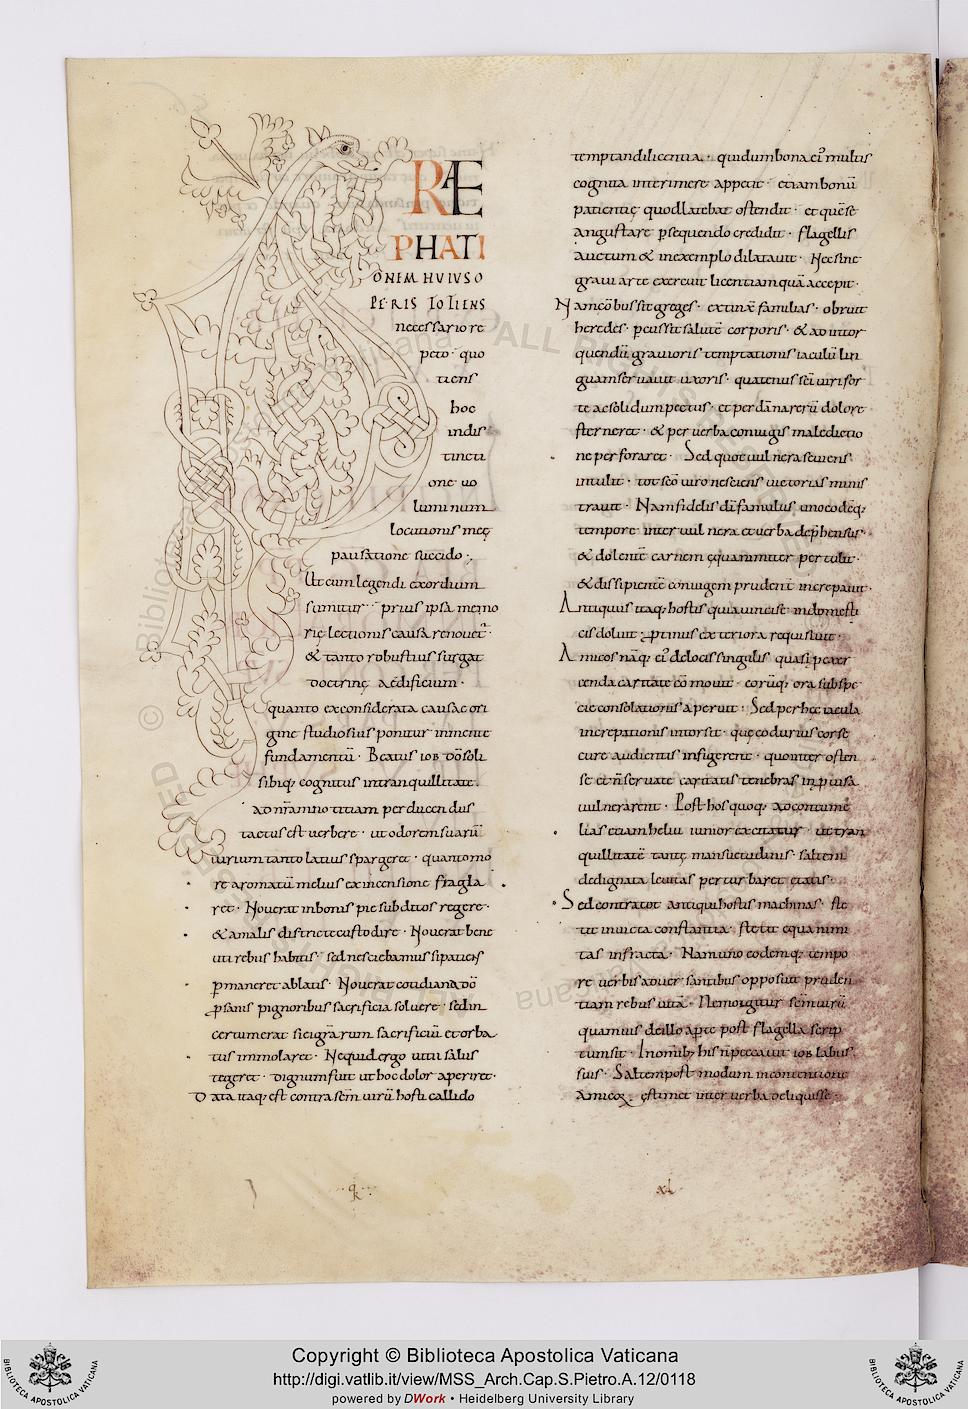 RAE
PHATI
ONEM HUIUS O
PERIS TOTIENS
necessario re
peto · quo
tiens
hoc
indis
tincti
one uo
luminum
locutionis meę
pausatione succido ·
Ut cum legendi exordium
sumitur · prius ipsa memo
rię lectionis causa renouet̃ ·
& tanto robustius surgat
doctrinę aedificium ·
quanto ex considerata causae ori
gine studiosius ponitur in mente
fundamentũ · Beatus iob dõ soli
sibiq; cognitus in tranquillitate
ad nr̃am notitiam perducendus
tactus est uerbere · ut odorem suarũ
uirium tanto latius spargeret · quanto mo
re aromatũ melius ex incensione fragla
ret · Nouerat in bonis pie subditos regere ·
& a malis districte custodire · Nouerat bene
uti rebus habitis · sed nesciebamus si patiens
permaneret ablatis · Nouerat cotidiana dõ
pro sanis pignoribus sacrificia soluere · sed in
certum erat si ei gr̃arum sacrificiũ et orba
tus immolaret · Ne quid ergo uitii salus
tegeret · dignum fuit ut hoc dolor aperiret ·
Data itaq; est contra sc̃m uirũ hosti callido
temptandi licentia · qui dum bona ei' multis
cognita interimere appetit · etiam bonũ
patientię quod latebat ostendit · et quẽ se
angustare persequendo credidit · flagellis
auctum & in exemplo dilatauit · Nec sine
graui arte exercuit licentiam quã accepit ·
Nam cõbussit greges · extinx̃ familias · obruit
heredes · percussit salutẽ corporis · & ad intor
quendũ grauioris temptationis iaculũ lin
guam seruauit uxoris · quatenus sc̃i uiri for
te ac solidum pectus · et per dãna rerũ dolore
sterneret · & per uerba coniugis maledictio
ne perforaret · Sed quot uulnera seuiens
intulit · tot sc̃o uiro nesciens uictorias minis
trauit · Nam fidelis dĩ famulus uno eodẽq;
tempore inter uulnera et uerba deprehensus ·
& dolentẽ carnem ęquanimiter pertulit ·
& dissipientẽ coniugem prudenť increpauit ·
Antiquus itaq; hostis quia uinci se in domesti
cis doluit · protinus exteriora requisiuit ·
Amicos nãq; ei' de locis singulis quasi pro exer
cenda caritate cõmouit · eorũq; ora sub spe
cie consolationis aperuit · Sed per hęc iacula
increpationis intorsit · quę eo durius cor se
cure audientis infigerent · quo inter osten
se et nõ seruate caritatis tenebras inprouisa
uulnerarent · Post hos quoq; ad contume
lias etiam heliu iunior excitatur · ut tran
quillitatẽ tantę mansuetudinis · saltem
dedignata leuitas perturbaret etatis ·
Sed contra tot antiqui hostis machinas · ste
tit inuicta constantia · stetit equanimi
tas infracta · Nam uno eodemq; tempo
re uerbis aduersantibus opposuit pruden
tiam rebus uitã · Nemo igitur sc̃m uirũ
quamuis de illo aperte post flagella scrip
tum sit · In omib; his nõ peccauit iob labiis
suis · Saltem post modum in contentione
amicoꝝ estimet inter uerba deliquisse ·
xl
Copyright © Biblioteca Apostolica Vaticana
http://digi.vatlib.it/view/MSS_Arch.Cap.S.Pietro.A.12/0118
powered by DWork • Heidelberg University Library
BIBLIOTECA APOSTOLICA VATICANA
BIBLIOTECA APOSTOLICA VATICANA